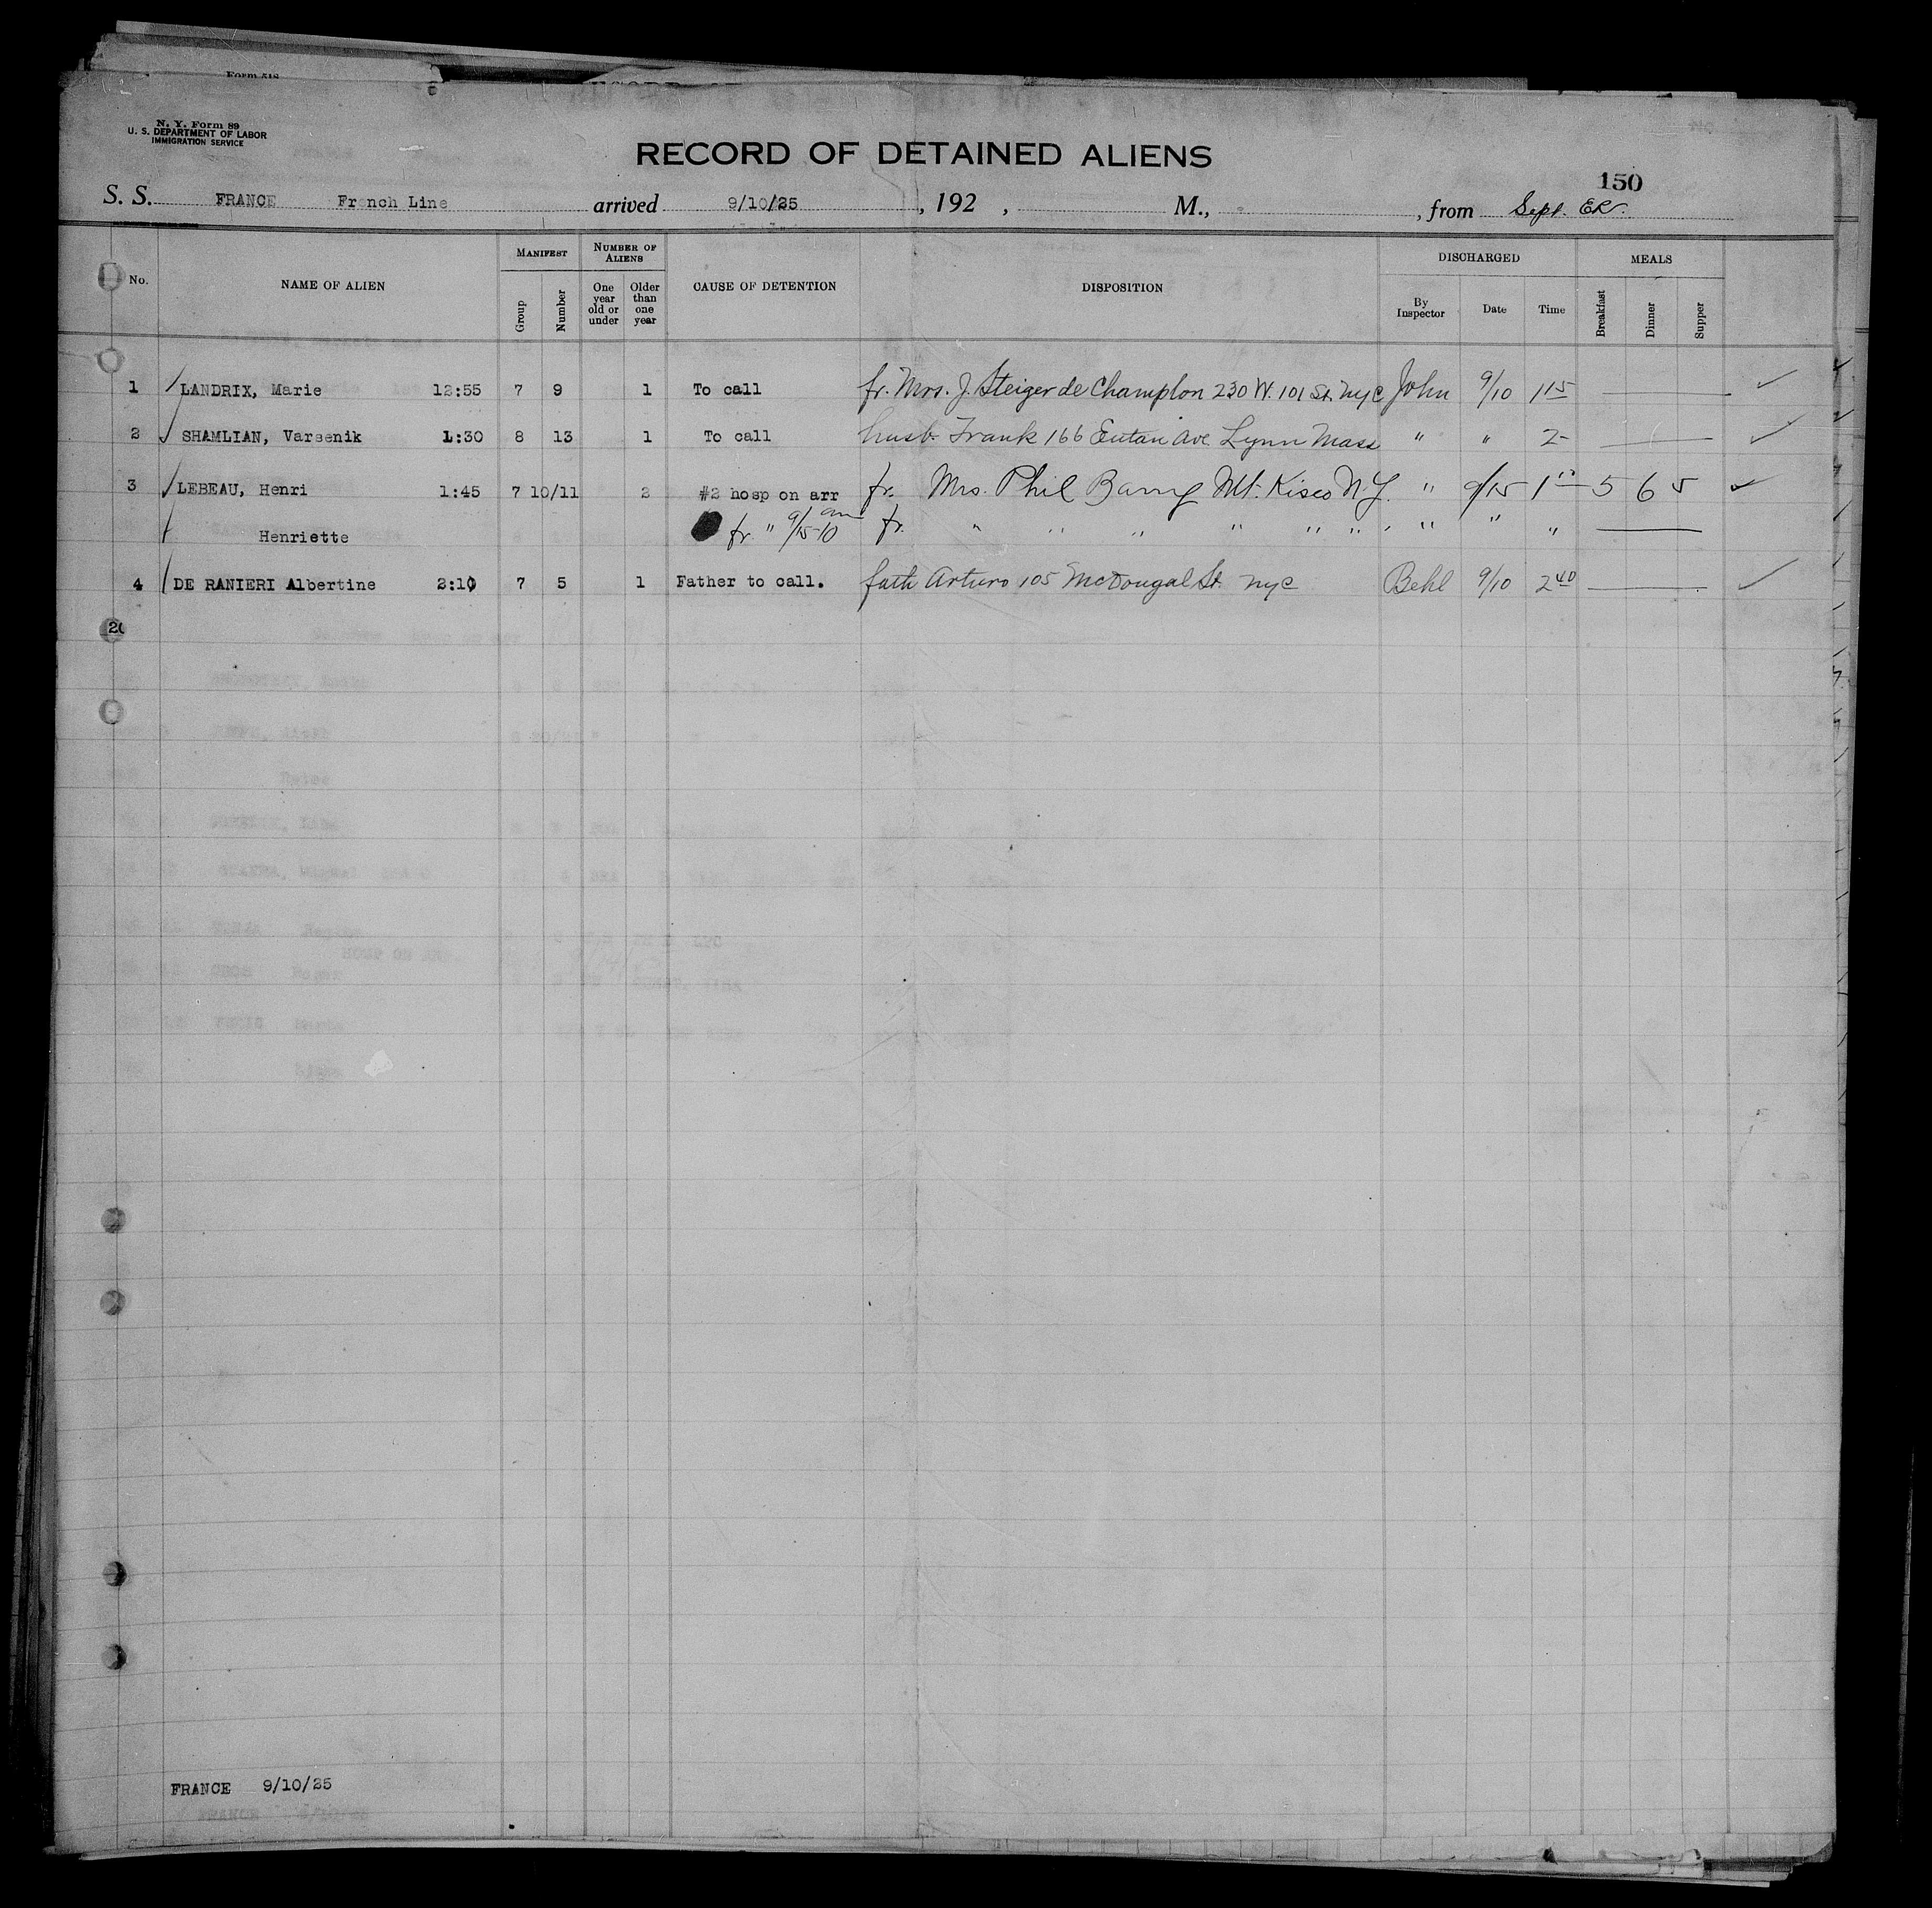 Form 518
N. Y. Form 89
U. S. DEPARTMENT OF LABOR
IMMIGRATION SERVICE
RECORD OF DETAINED ALIENS
150
S. S. FRANCE French Line arrived 9/10/25, 192 , M., , from Sept. ER.
No. NAME OF ALIEN MANIFEST Group Number NUMBER OF ALIENS One year old or under Older than one year CAUSE OF DETENTION DISPOSITION DISCHARGED By Inspector Date Time MEALS Breakfast Dinner Supper
1 LANDRIX, Marie 12:55 7 9 1 To call fr. Mrs. J. Steiger de Champlon 230 W. 101 St. NYC John 9/10 1 15
2 SHAMLIAN, Varsenik 1:30 8 13 1 To call husb. Frank 166 Eutaw Ave Lynn Mass " " 2-
3 LEBEAU, Henri 1:45 7 10/11 2 #2 hosp on arr fr. Mrs. Phil Barry Mt. Kisco N.Y. " 9/15 1 5 6 5
Henriette fr. " 9/15-10 am fr. " " " " " " " " "
4 DE RANIERI Albertine 2:10 7 5 1 Father to call. fath Arturo 105 McDougal St. NYC Behl 9/10 2 40
FRANCE 9/10/25